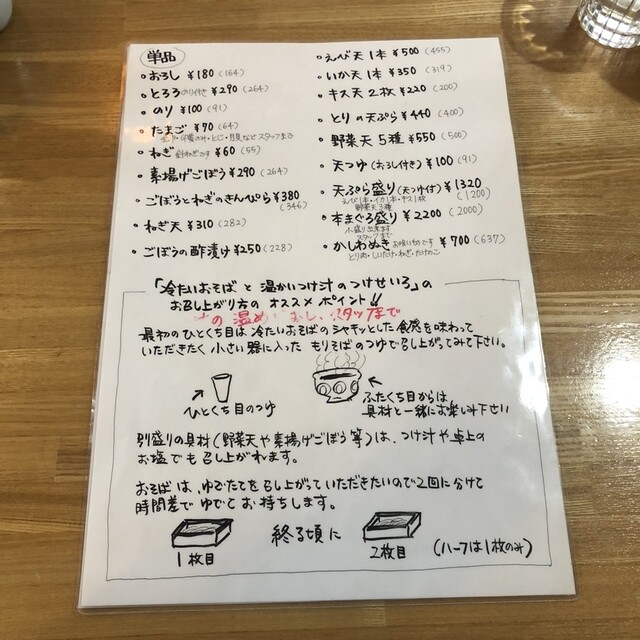 単品
・おろし ¥180 (164)
・とろろ のり付き ¥290 (264)
・のり ¥100 (91)
・たまご ¥70 (64)
・ねぎ ¥60 (55)
・素揚げごぼう ¥290 (264)
・ごぼうとねぎのきんぴら ¥380 (346)
・ねぎ天 ¥310 (282)
・ごぼうの酢漬け ¥250 (228)
・えび天 1本 ¥500 (455)
・いか天 1本 ¥350 (319)
・キス天 2枚 ¥220 (200)
・とりの天ぷら ¥440 (400)
・野菜天 5種 ¥550 (500)
・天つゆ (おろし付き) ¥100 (91)
・天ぷら盛り (天つゆ付) ¥1320 (1200)
えび1本・イカ1本・キス1枚
野菜天3種
・本まぐろ盛り ¥2200 (2000)
小盛り出来ます
スタッフまで
・かしわぬき お吸い物です ¥700 (637)
とり肉・しいたけ・ねぎ・たけのこ
「冷たいおそばと温かいつけ汁のつけせいろ」の
お召し上がり方のオススメポイント!!
の温め 直し、スタッフまで
最初のひとくち目は冷たいおそばのシャキッとした食感を味わって
いただきたく小さい器に入ったもりそばのつゆで召し上がってみて下さい。
ひとくち目のつゆ
ふたくち目からは
具材と一緒にお楽しみ下さい
別盛りの具材(野菜天や素揚げごぼう等)は、つけ汁や卓上の
お塩でも召し上がれます。
おそばは、ゆでたてを召し上がっていただきたいので2回に分けて
時間差でゆでてお持ちします。
1枚目
終る頃に
2枚目
(ハーフは1枚のみ)